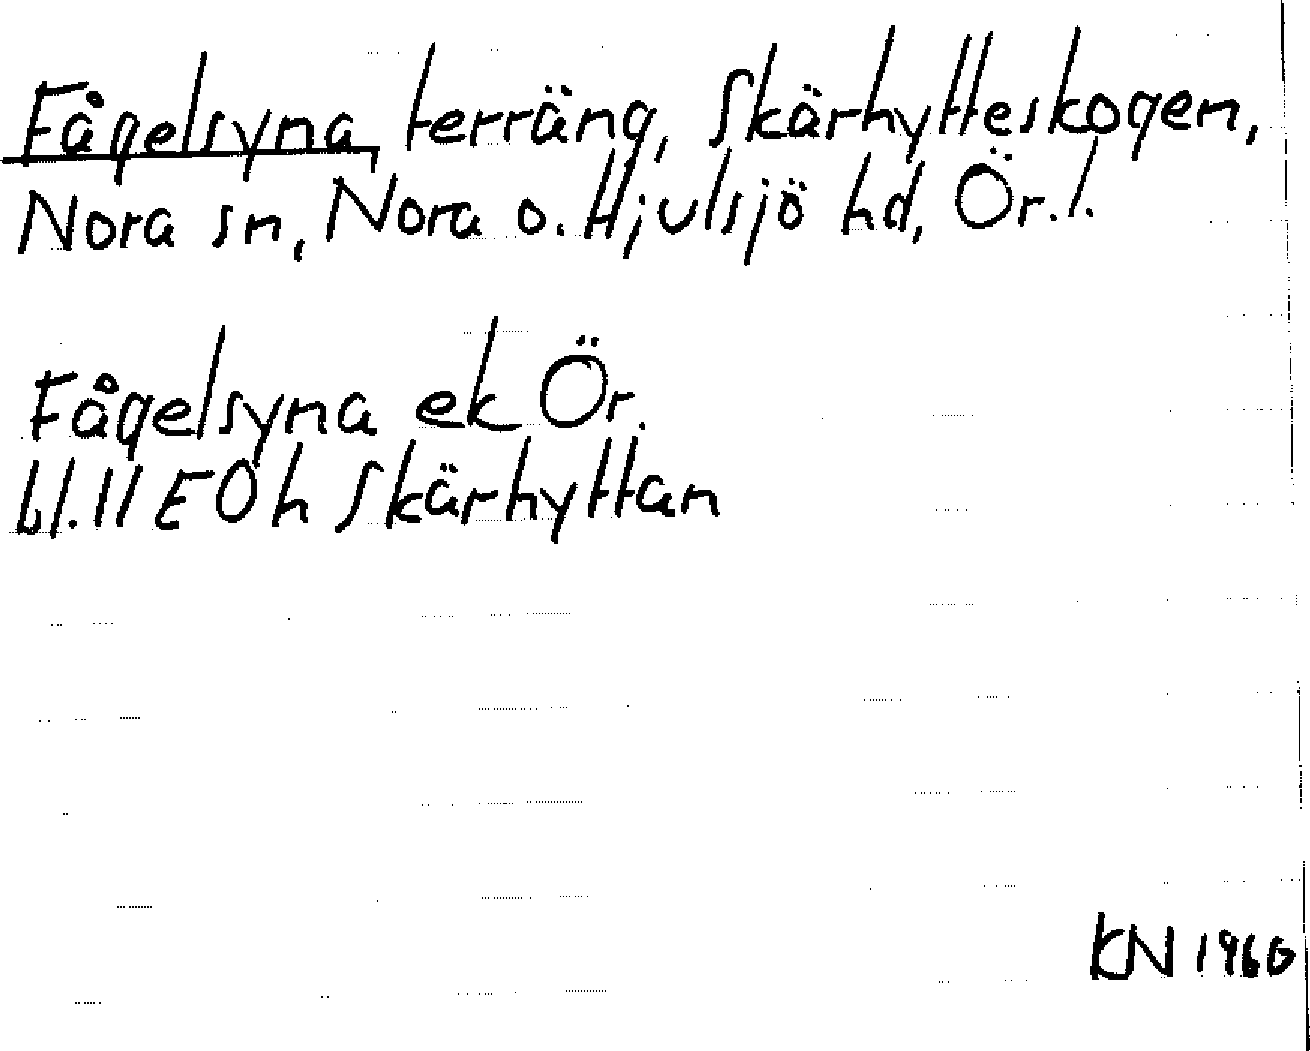 Fågelsyna, terräng, Skärhytteskogen,
Nora sn, Nora o. Hjulsjö hd, Ör. l.
Fågelsyna ek Ör.
bl. 11 E Öh Skärhyttan
KN 1966